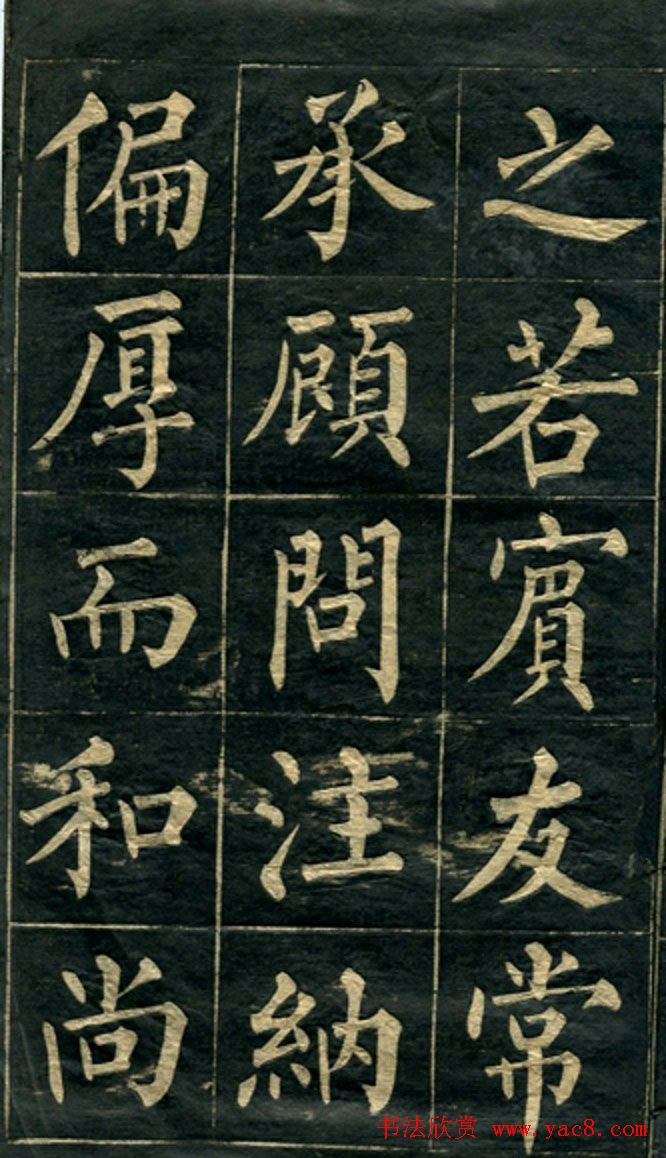 之若賓友常
承顧問注納
偏厚而和尚
书法欣赏 www.yac8.com